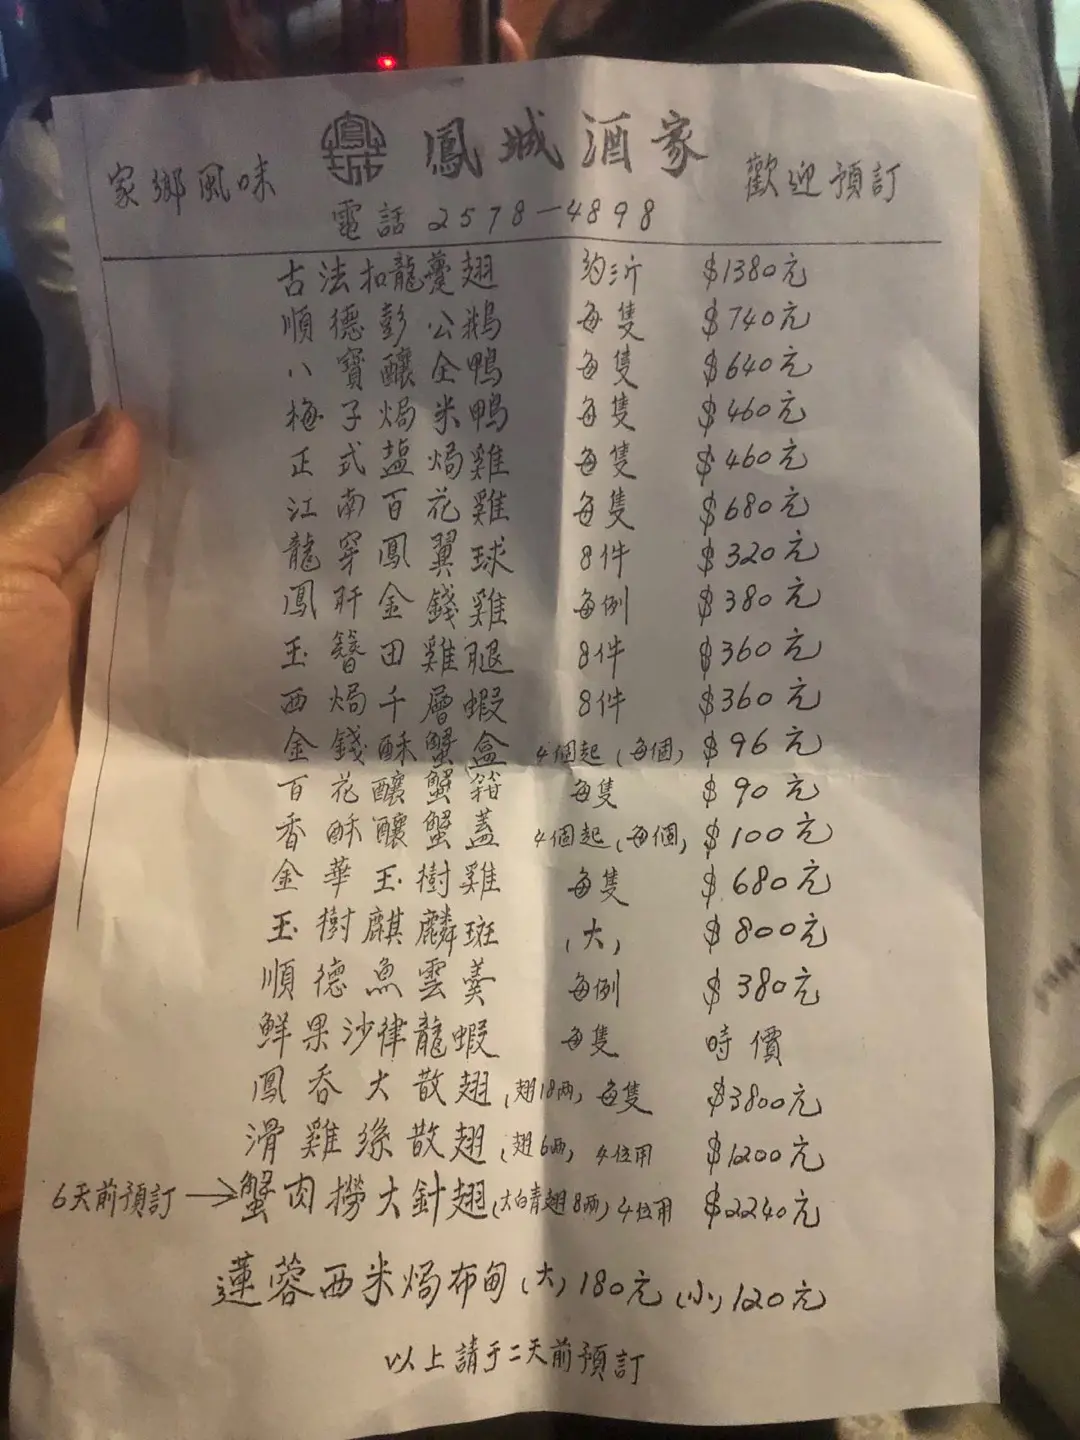 鳳城酒家
家鄉風味
歡迎預訂
電話 2578-4898
古法扣龍躉翅 約3斤 $1380元
順德彭公鵝 每隻 $740元
八寶釀全鴨 每隻 $640元
梅子焗米鴨 每隻 $460元
正式盐焗雞 每隻 $460元
江南百花雞 每隻 $680元
龍穿鳳翼球 8件 $320元
鳳肝金錢雞 每例 $380元
玉簪田雞腿 8件 $360元
西焗千層蝦 8件 $360元
金錢酥蟹盒 4個起(每個) $96元
百花釀蟹箝 每隻 $90元
香酥釀蟹蓋 4個起(每個) $100元
金華玉樹雞 每隻 $680元
玉樹麒麟斑 (大) $800元
順德魚雲羹 每例 $380元
鮮果沙律龍蝦 每隻 時價
鳳吞大散翅(翅18両) 每隻 $3800元
滑雞絲散翅(翅6両) 4位用 $1200元
6天前預訂→蟹肉撈大針翅(大白青翅8両) 4位用 $2240元
蓮蓉西米焗布甸(大)180元 (小)120元
以上請于二天前預訂